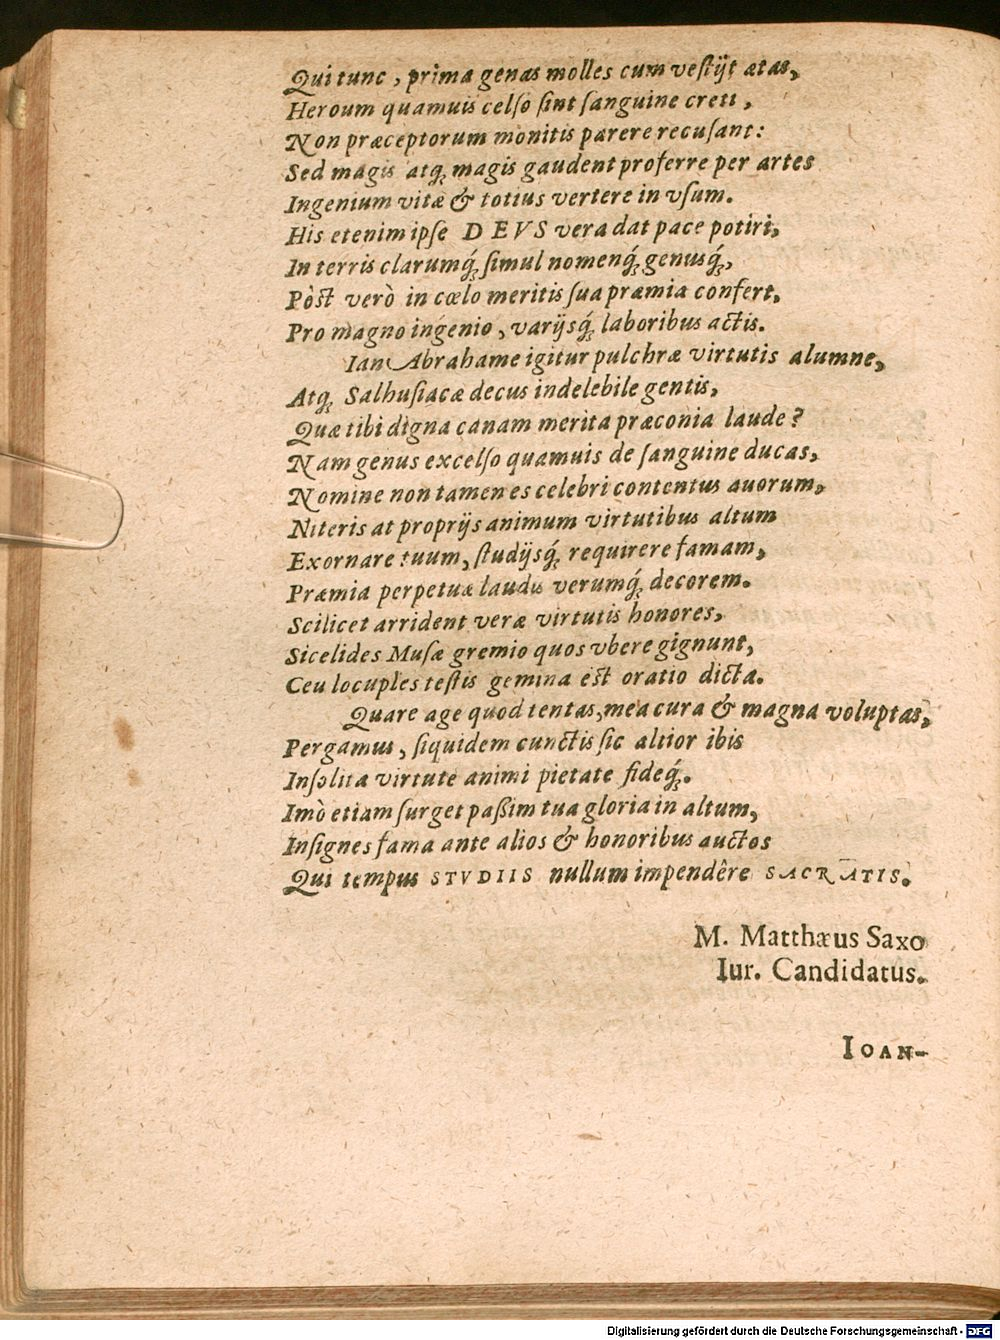 Qui tunc, prima genas molles cum vestijt ætas,
Heroum quamuis celso sint sanguine creti,
Non præceptorum monitis parere recusant:
Sed magis atq́; magis gaudent proferre per artes
Ingenium vitæ & totius vertere in vsum.
His etenim ipse DEVS vera dat pace potiri,
In terris clarumq́; simul nomenq́; genusq́;,
Pòst verò in cœlo meritis sua præmia confert,
Pro magno ingenio, varijsq́; laboribus actis.
Ian Abrahame igitur pulchræ virtutis alumne,
Atq; Salhusiacæ decus indelebile gentis,
Quæ tibi digna canam merita præconia laude?
Nam genus excelso quamuis de sanguine ducas,
Nomine non tamen es celebri contentus auorum,
Niteris at proprijs animum virtutibus altum
Exornare tuum, studijsq́; requirere famam,
Præmia perpetuæ laudis verumq́; decorem.
Scilicet arrident veræ virtutis honores,
Sicelides Musæ gremio quos vbere gignunt,
Ceu locuples testis gemina est oratio dicta.
Quare age quod tentas, mea cura & magna voluptas,
Pergamus, siquidem cunctis sic altior ibis
Insolita virtute animi pietate fideq́;.
Imò etiam surget paßim tua gloria in altum,
Insignes fama ante alios & honoribus auctos
Qui tempus STVDIIS nullum impendêre SACRATIS.
M. Matthæus Saxo
Iur. Candidatus.
IOAN-
Digitalisierung gefördert durch die Deutsche Forschungsgemeinschaft - DFG